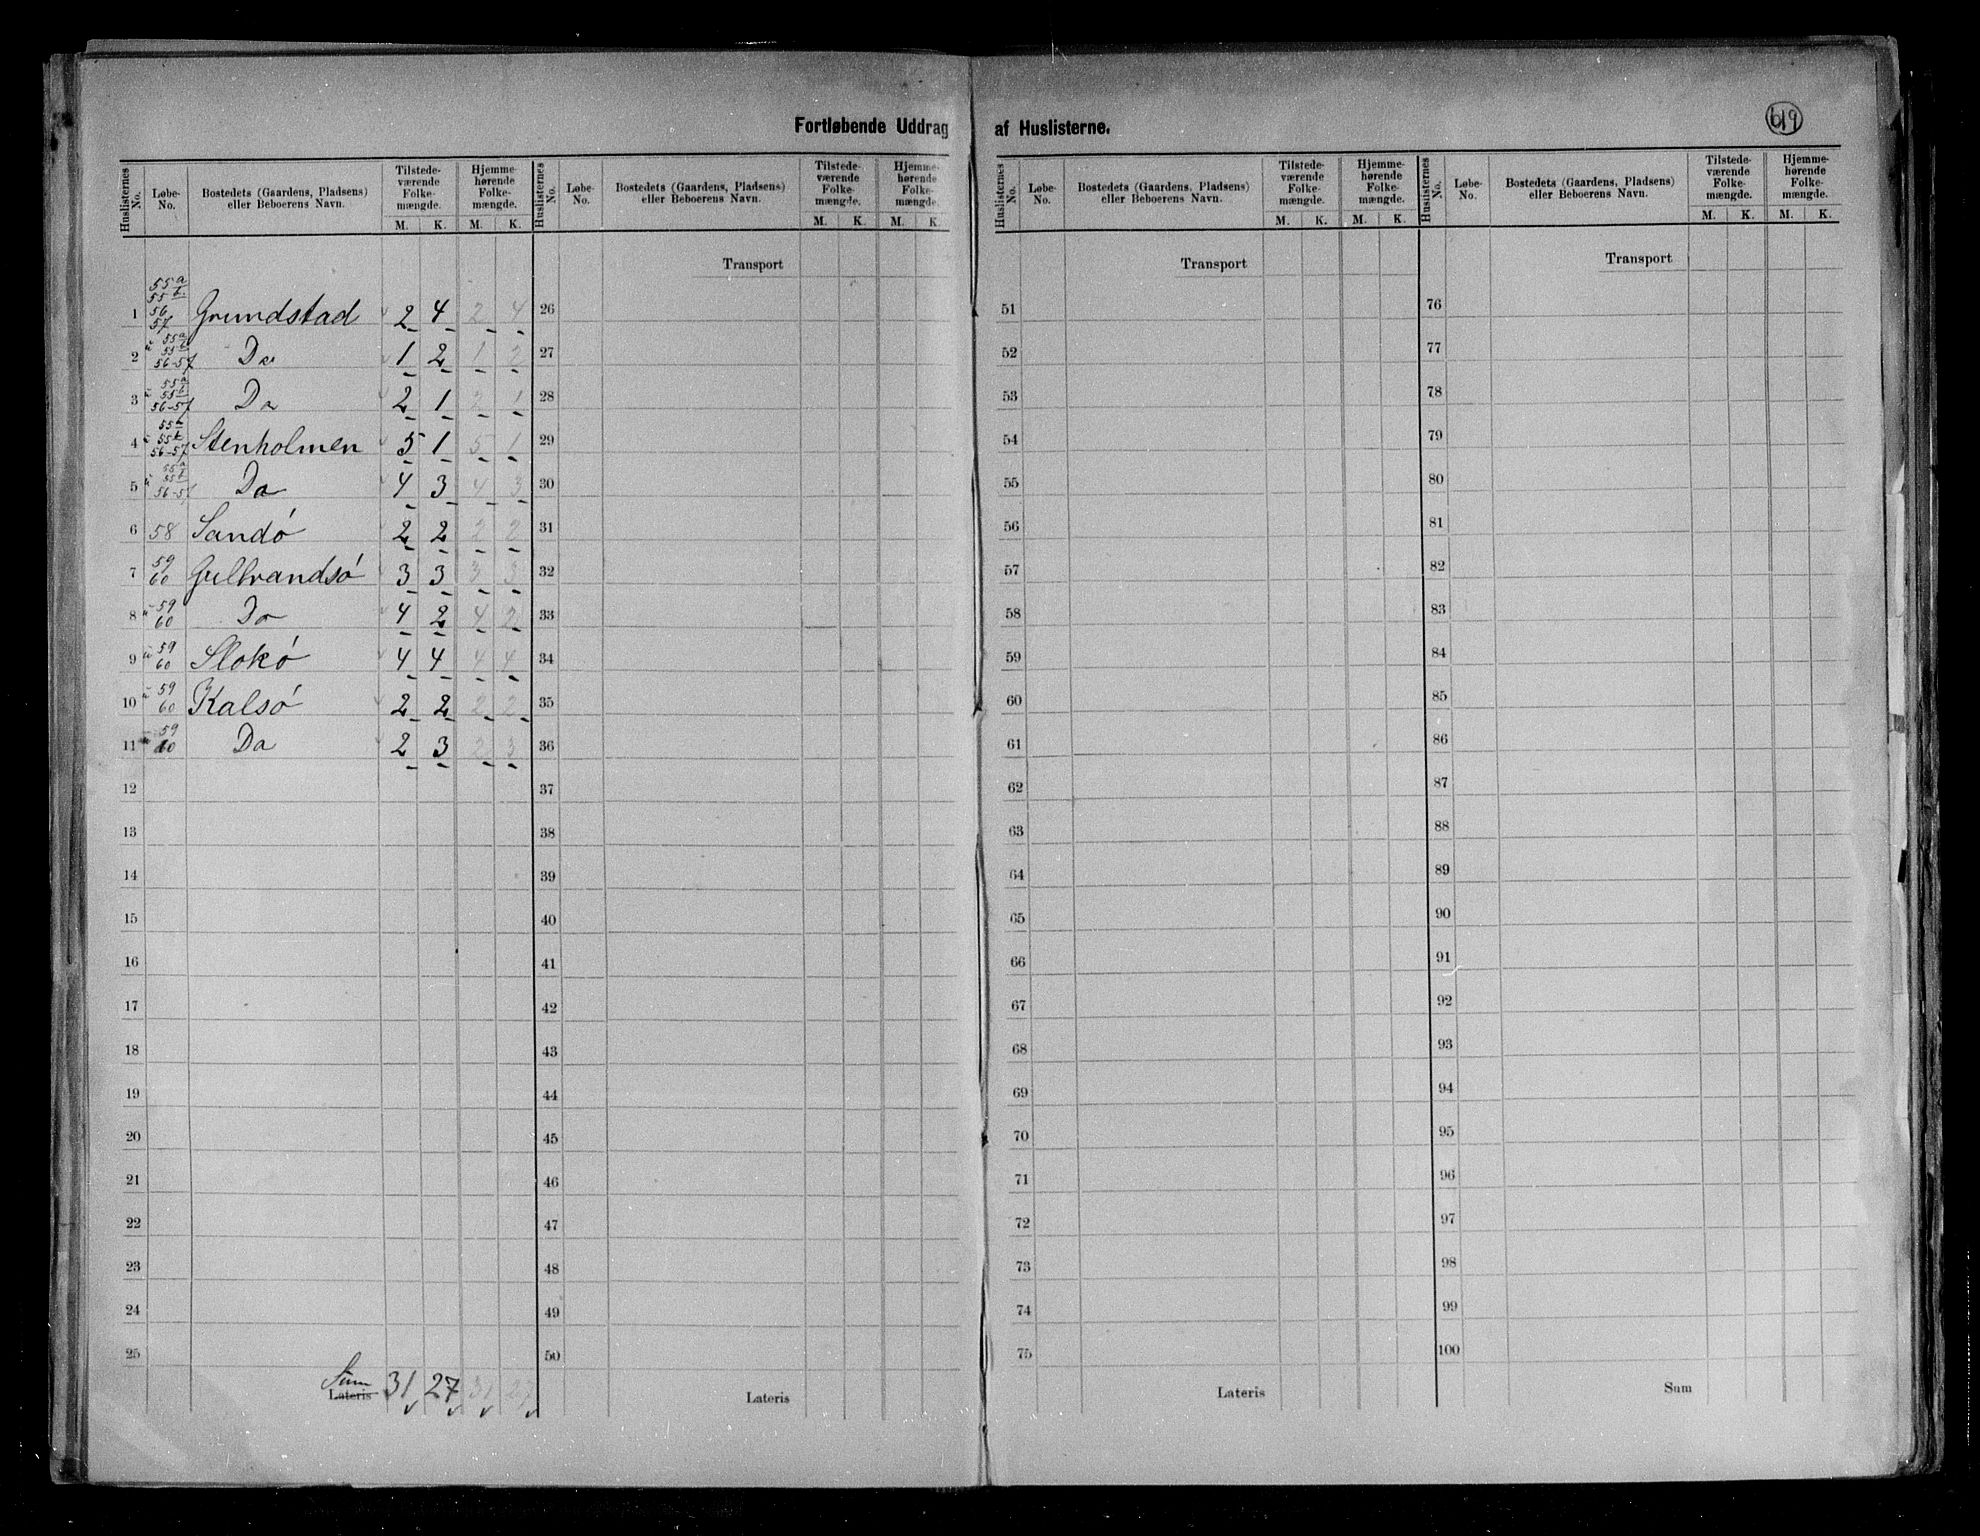 Fortløbende Uddrag af Huslisterne.
619
Huslisternes No. | Løbe-No. | Bostedets (Gaardens, Pladsens) eller Beboerens Navn. | Tilstedeværende Folkemængde. M. K. | Hjemmehørende Folkemængde. M. K.
1 55a 55b 56 57 Grundstad 2 4 2 4
2 u 55a 55b 56-57 Do 1 2 1 2
3 u 55a 55b 56-57 Do 2 1 2 1
4 u 55b 56-57 Stenholmen 5 1 5 1
5 u 55a 55b 56-57 Do 4 3 4 3
6 58 Sandö 2 2 2 2
7 59 60 Gulbrandsö 3 3 3 3
8 u 59 60 Do 4 2 4 2
9 u 59 60 Slokö 4 4 4 4
10 u 59 60 Kalsö 2 2 2 2
11 59 60 Do 2 3 2 3
12
13
14
15
16
17
18
19
20
21
22
23
24
25
Sum
Lateris 31 27 31 27
Huslisternes No. | Løbe-No. | Bostedets (Gaardens, Pladsens) eller Beboerens Navn. | Tilstedeværende Folkemængde. M. K. | Hjemmehørende Folkemængde. M. K.
Transport
26
27
28
29
30
31
32
33
34
35
36
37
38
39
40
41
42
43
44
45
46
47
48
49
50
Lateris
Huslisternes No. | Løbe-No. | Bostedets (Gaardens, Pladsens) eller Beboerens Navn. | Tilstedeværende Folkemængde. M. K. | Hjemmehørende Folkemængde. M. K.
Transport
51
52
53
54
55
56
57
58
59
60
61
62
63
64
65
66
67
68
69
70
71
72
73
74
75
Lateris
Huslisternes No. | Løbe-No. | Bostedets (Gaardens, Pladsens) eller Beboerens Navn. | Tilstedeværende Folkemængde. M. K. | Hjemmehørende Folkemængde. M. K.
Transport
76
77
78
79
80
81
82
83
84
85
86
87
88
89
90
91
92
93
94
95
96
97
98
99
100
Sum